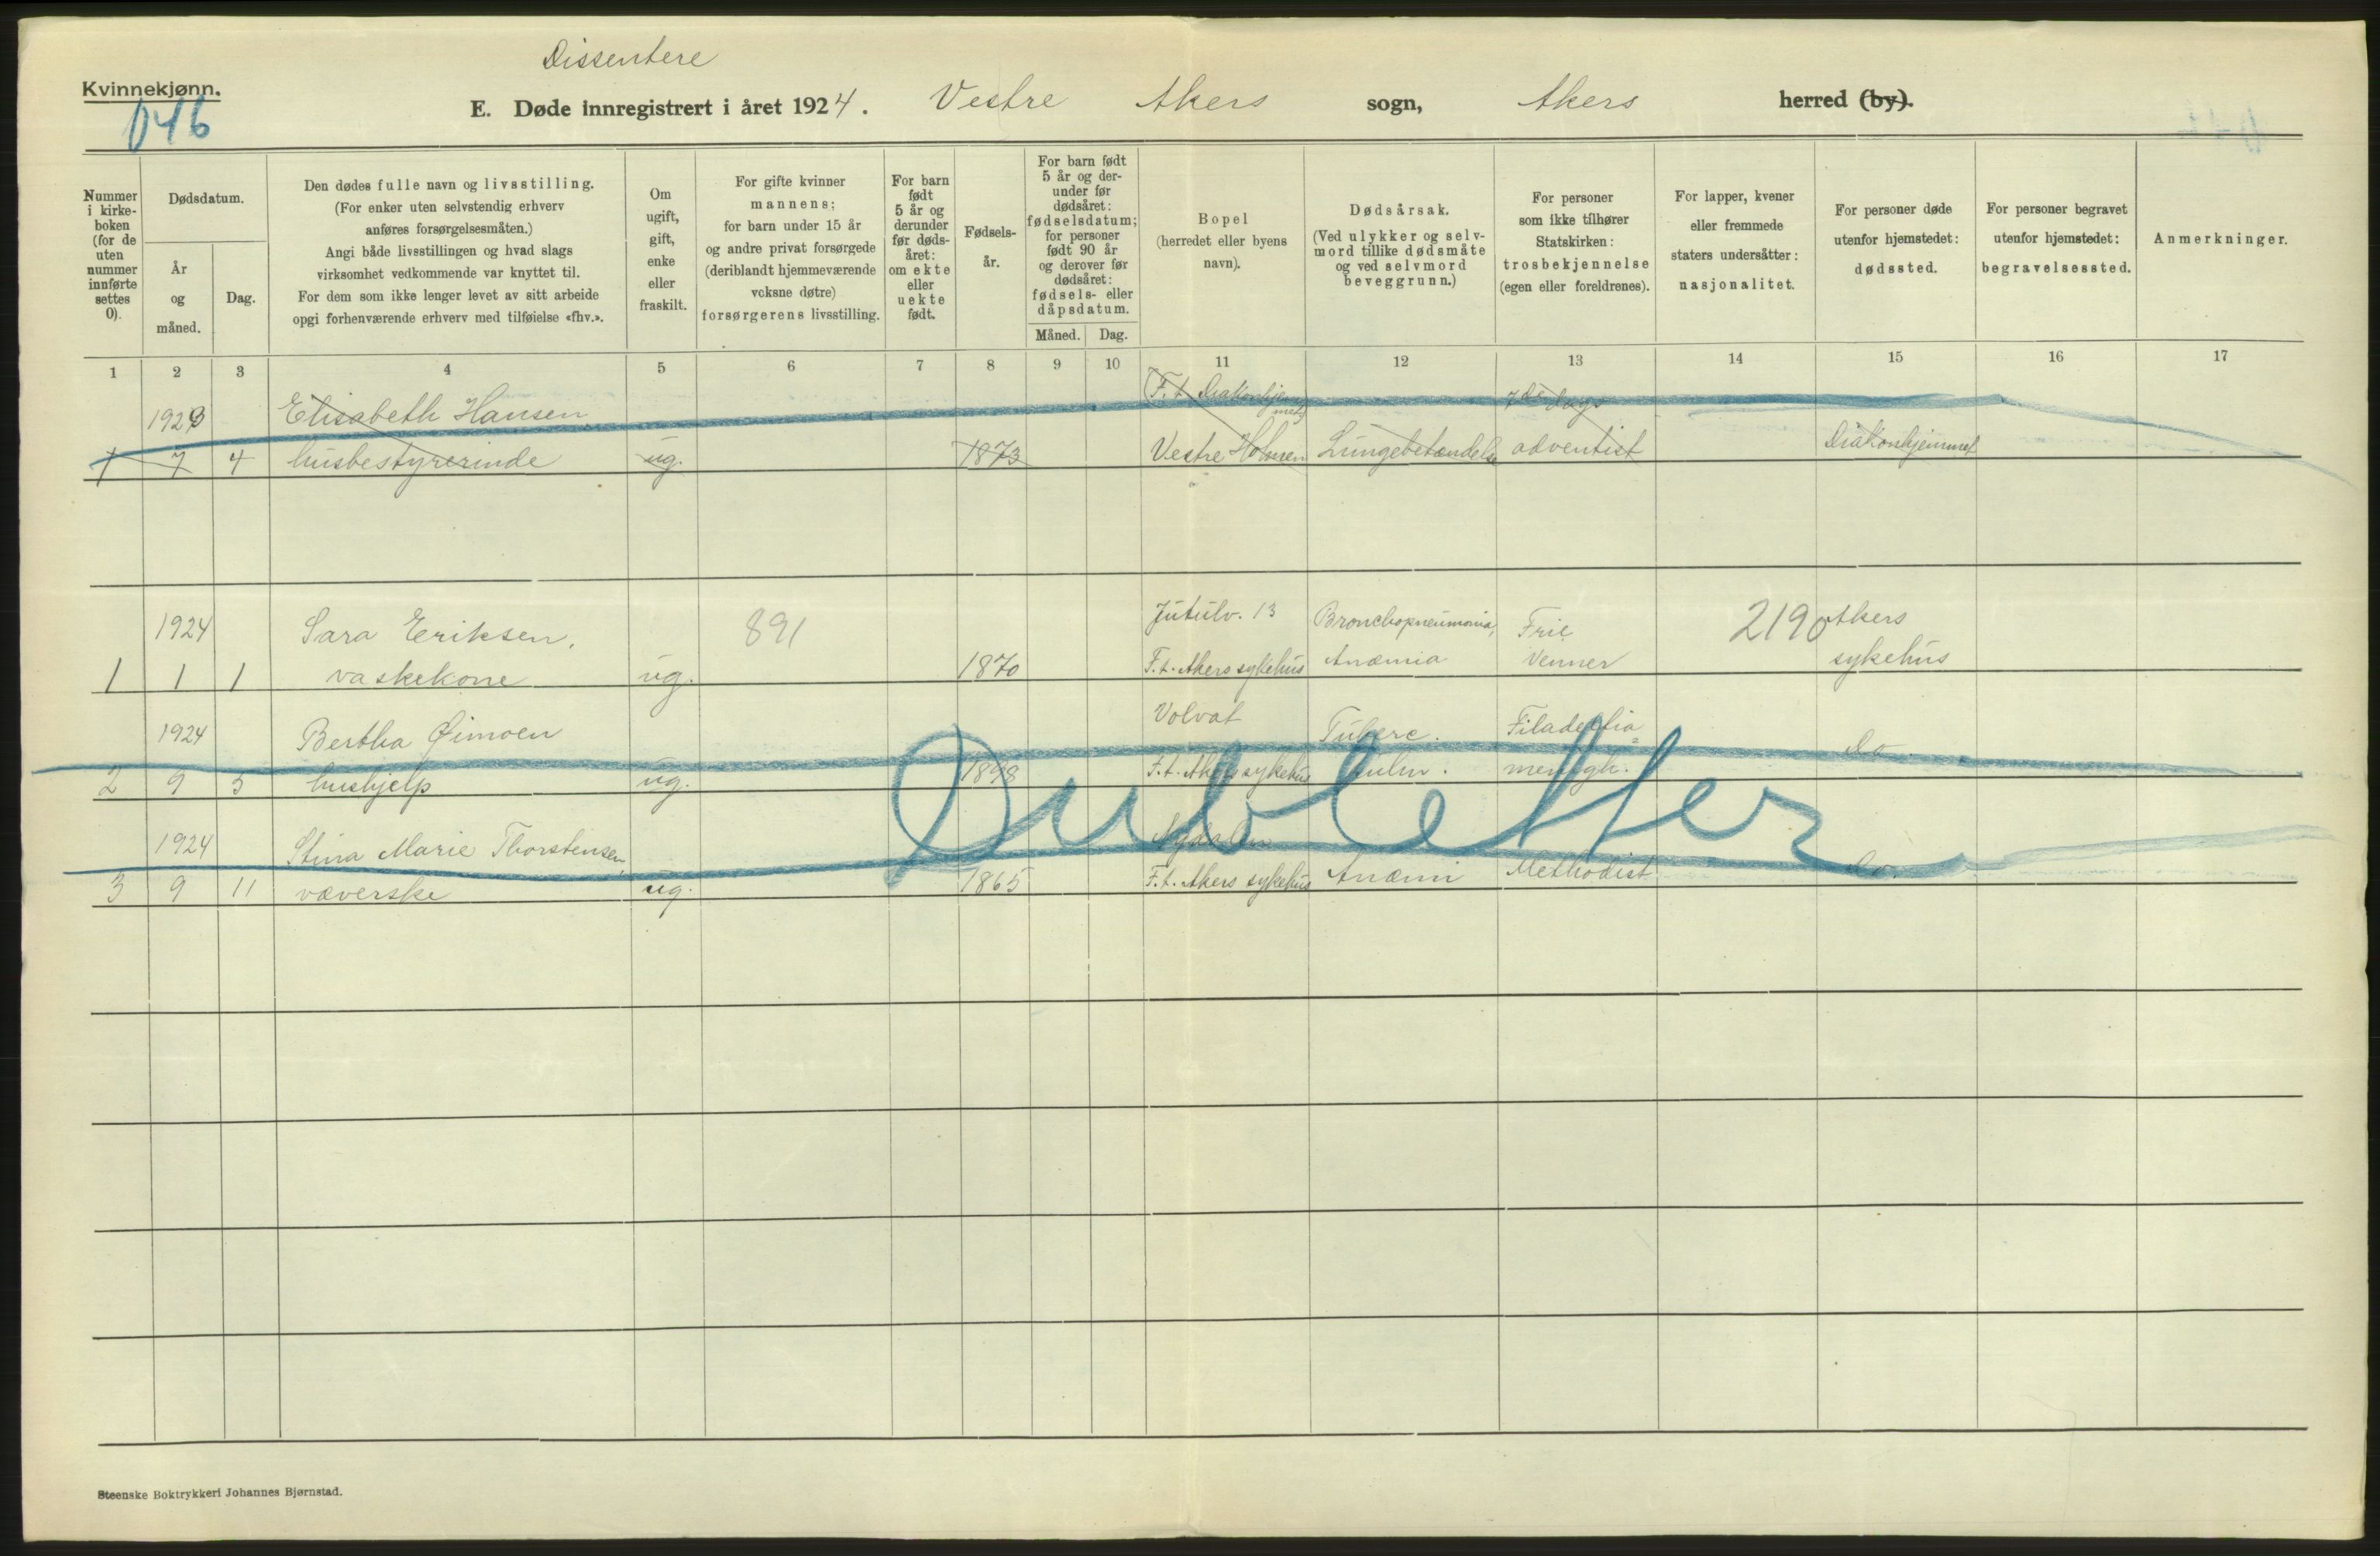 Dissentere
Kvinnekjønn.
046
E. Døde innregistrert i året 1924. Vestre Akers sogn, Akers herred (by).
Nummer i kirke-boken (for de uten nummer innførte settes 0).
Dødsdatum.
År og måned.
Dag.
Den dødes fulle navn og livsstilling.
(For enker uten selvstendig erhverv
anføres forsørgelsesmåten.)
Angi både livsstillingen og hvad slags
virksomhet vedkommende var knyttet til.
For dem som ikke lenger levet av sitt arbeide
opgi forhenværende erhverv med tilføielse «fhv.».
Om
ugift,
gift,
enke
eller
fraskilt.
For gifte kvinner
mannens;
for barn under 15 år
og andre privat forsørgede
(deriblandt hjemmeværende
voksne døtre)
forsørgerens livsstilling.
For barn
født
5 år og
derunder
før døds-
året:
om ekte
eller
uekte
født.
Fødsels-
år.
For barn født
5 år og der-
under før
dødsåret:
fødselsdatum;
for personer
født 90 år
og derover før
dødsåret:
fødsels- eller
dåpsdatum.
Måned. Dag.
Bopel
(herredet eller byens
navn).
Dødsårsak.
(Ved ulykker og selv-
mord tillike dødsmåte
og ved selvmord
beveggrunn.)
For personer
som ikke tilhører
Statskirken:
trosbekjennelse
(egen eller foreldrenes).
For lapper, kvener
eller fremmede
staters undersåtter:
nasjonalitet.
For personer døde
utenfor hjemstedet:
dødssted.
For personer begravet
utenfor hjemstedet:
begravelsessted.
Anmerkninger.
1 2 3 4 5 6 7 8 9 10 11 12 13 14 15 16 17
1923 Elisabeth Hansen F.t. Diakonhjemmet 7de dags
1 7 4 husbestyrerinde ug. 1873 Vestre Holmen Lungebetændelse adventist Diakonhjemmet
1924 Sara Eriksen, 891 Jutulv. 13 Bronchopneumonia, Frie 2190 Akers
1 1 1 vaskekone ug. 1870 F.t. Akers sykehus Anæmia Venner sykehus
1924 Bertha Øimoen Volvat Tuberc. Filadelfia= Do
2 9 5 hushjelp ug. 1898 F.t. Akers sykehus pulm. menigh.
Dubletter
1924 Stina Marie Thorstensen, Nydalen
3 9 11 væverske ug. 1865 F.t. Akers sykehus Anæmi Methodist Do.
Steenske Boktrykkeri Johannes Bjørnstad.